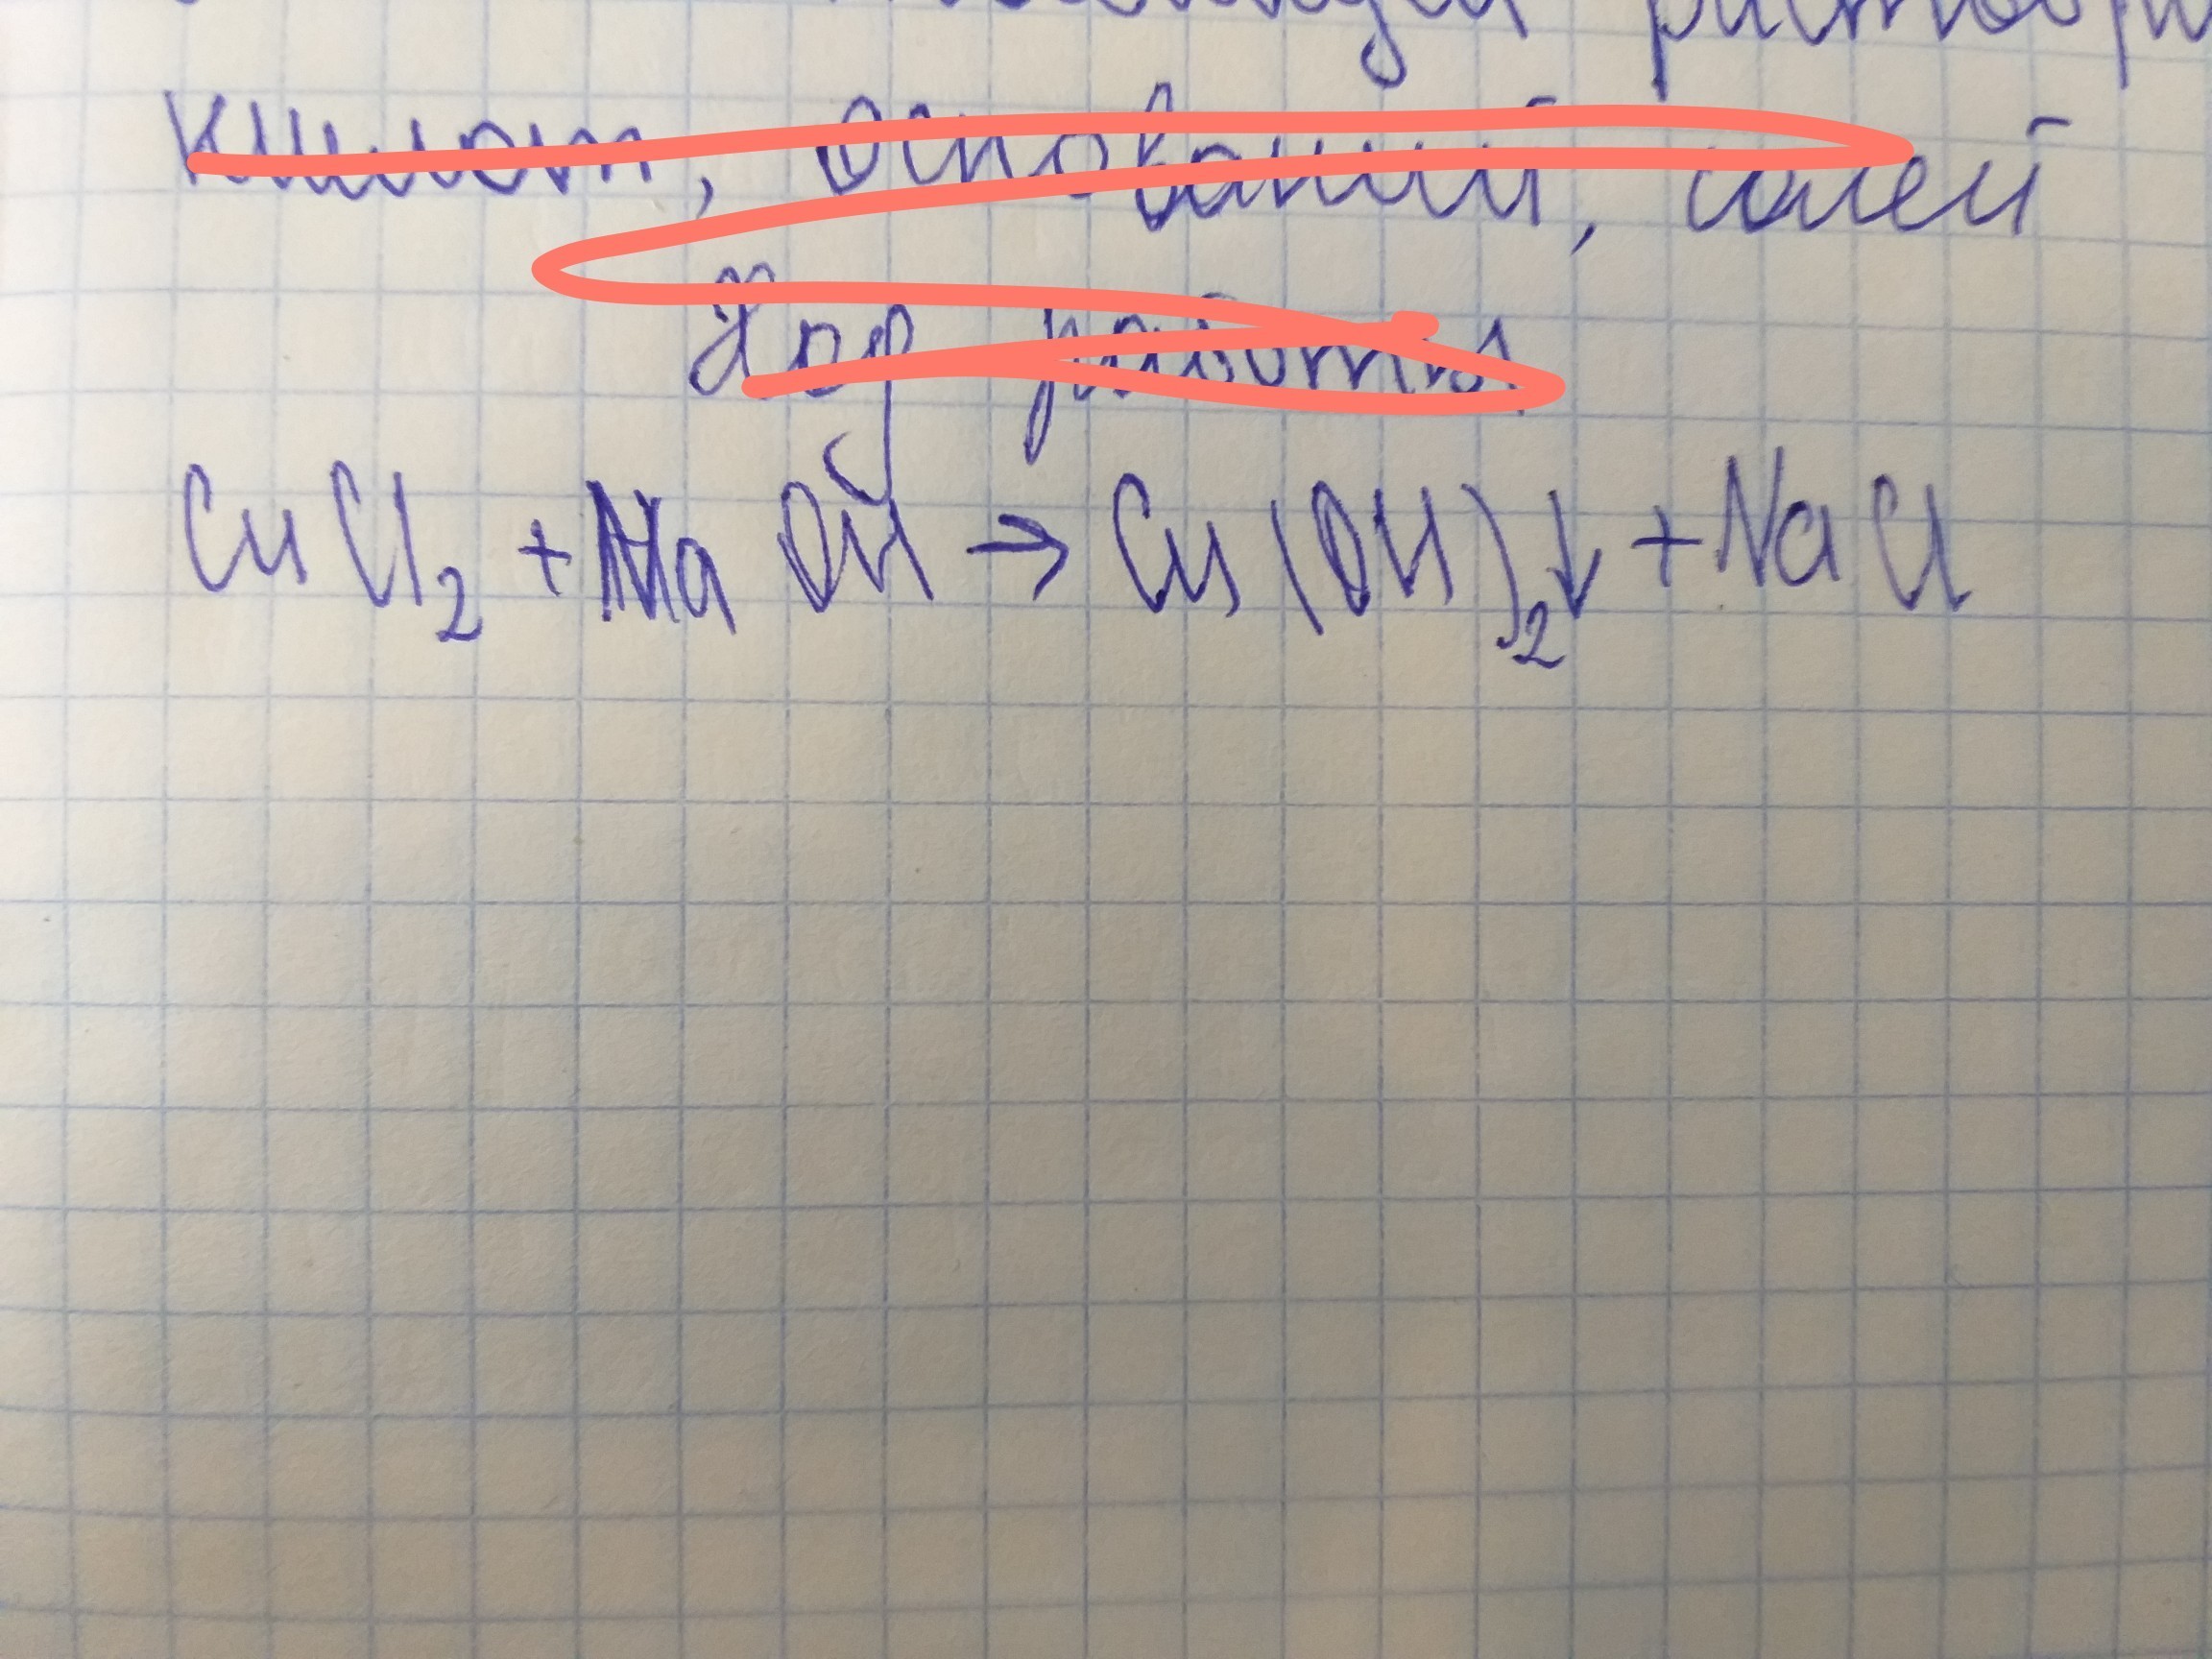 кислот, оснований, солей
Ход работы
CuCl₂ + NaOH → Cu(OH)₂↓ + NaCl